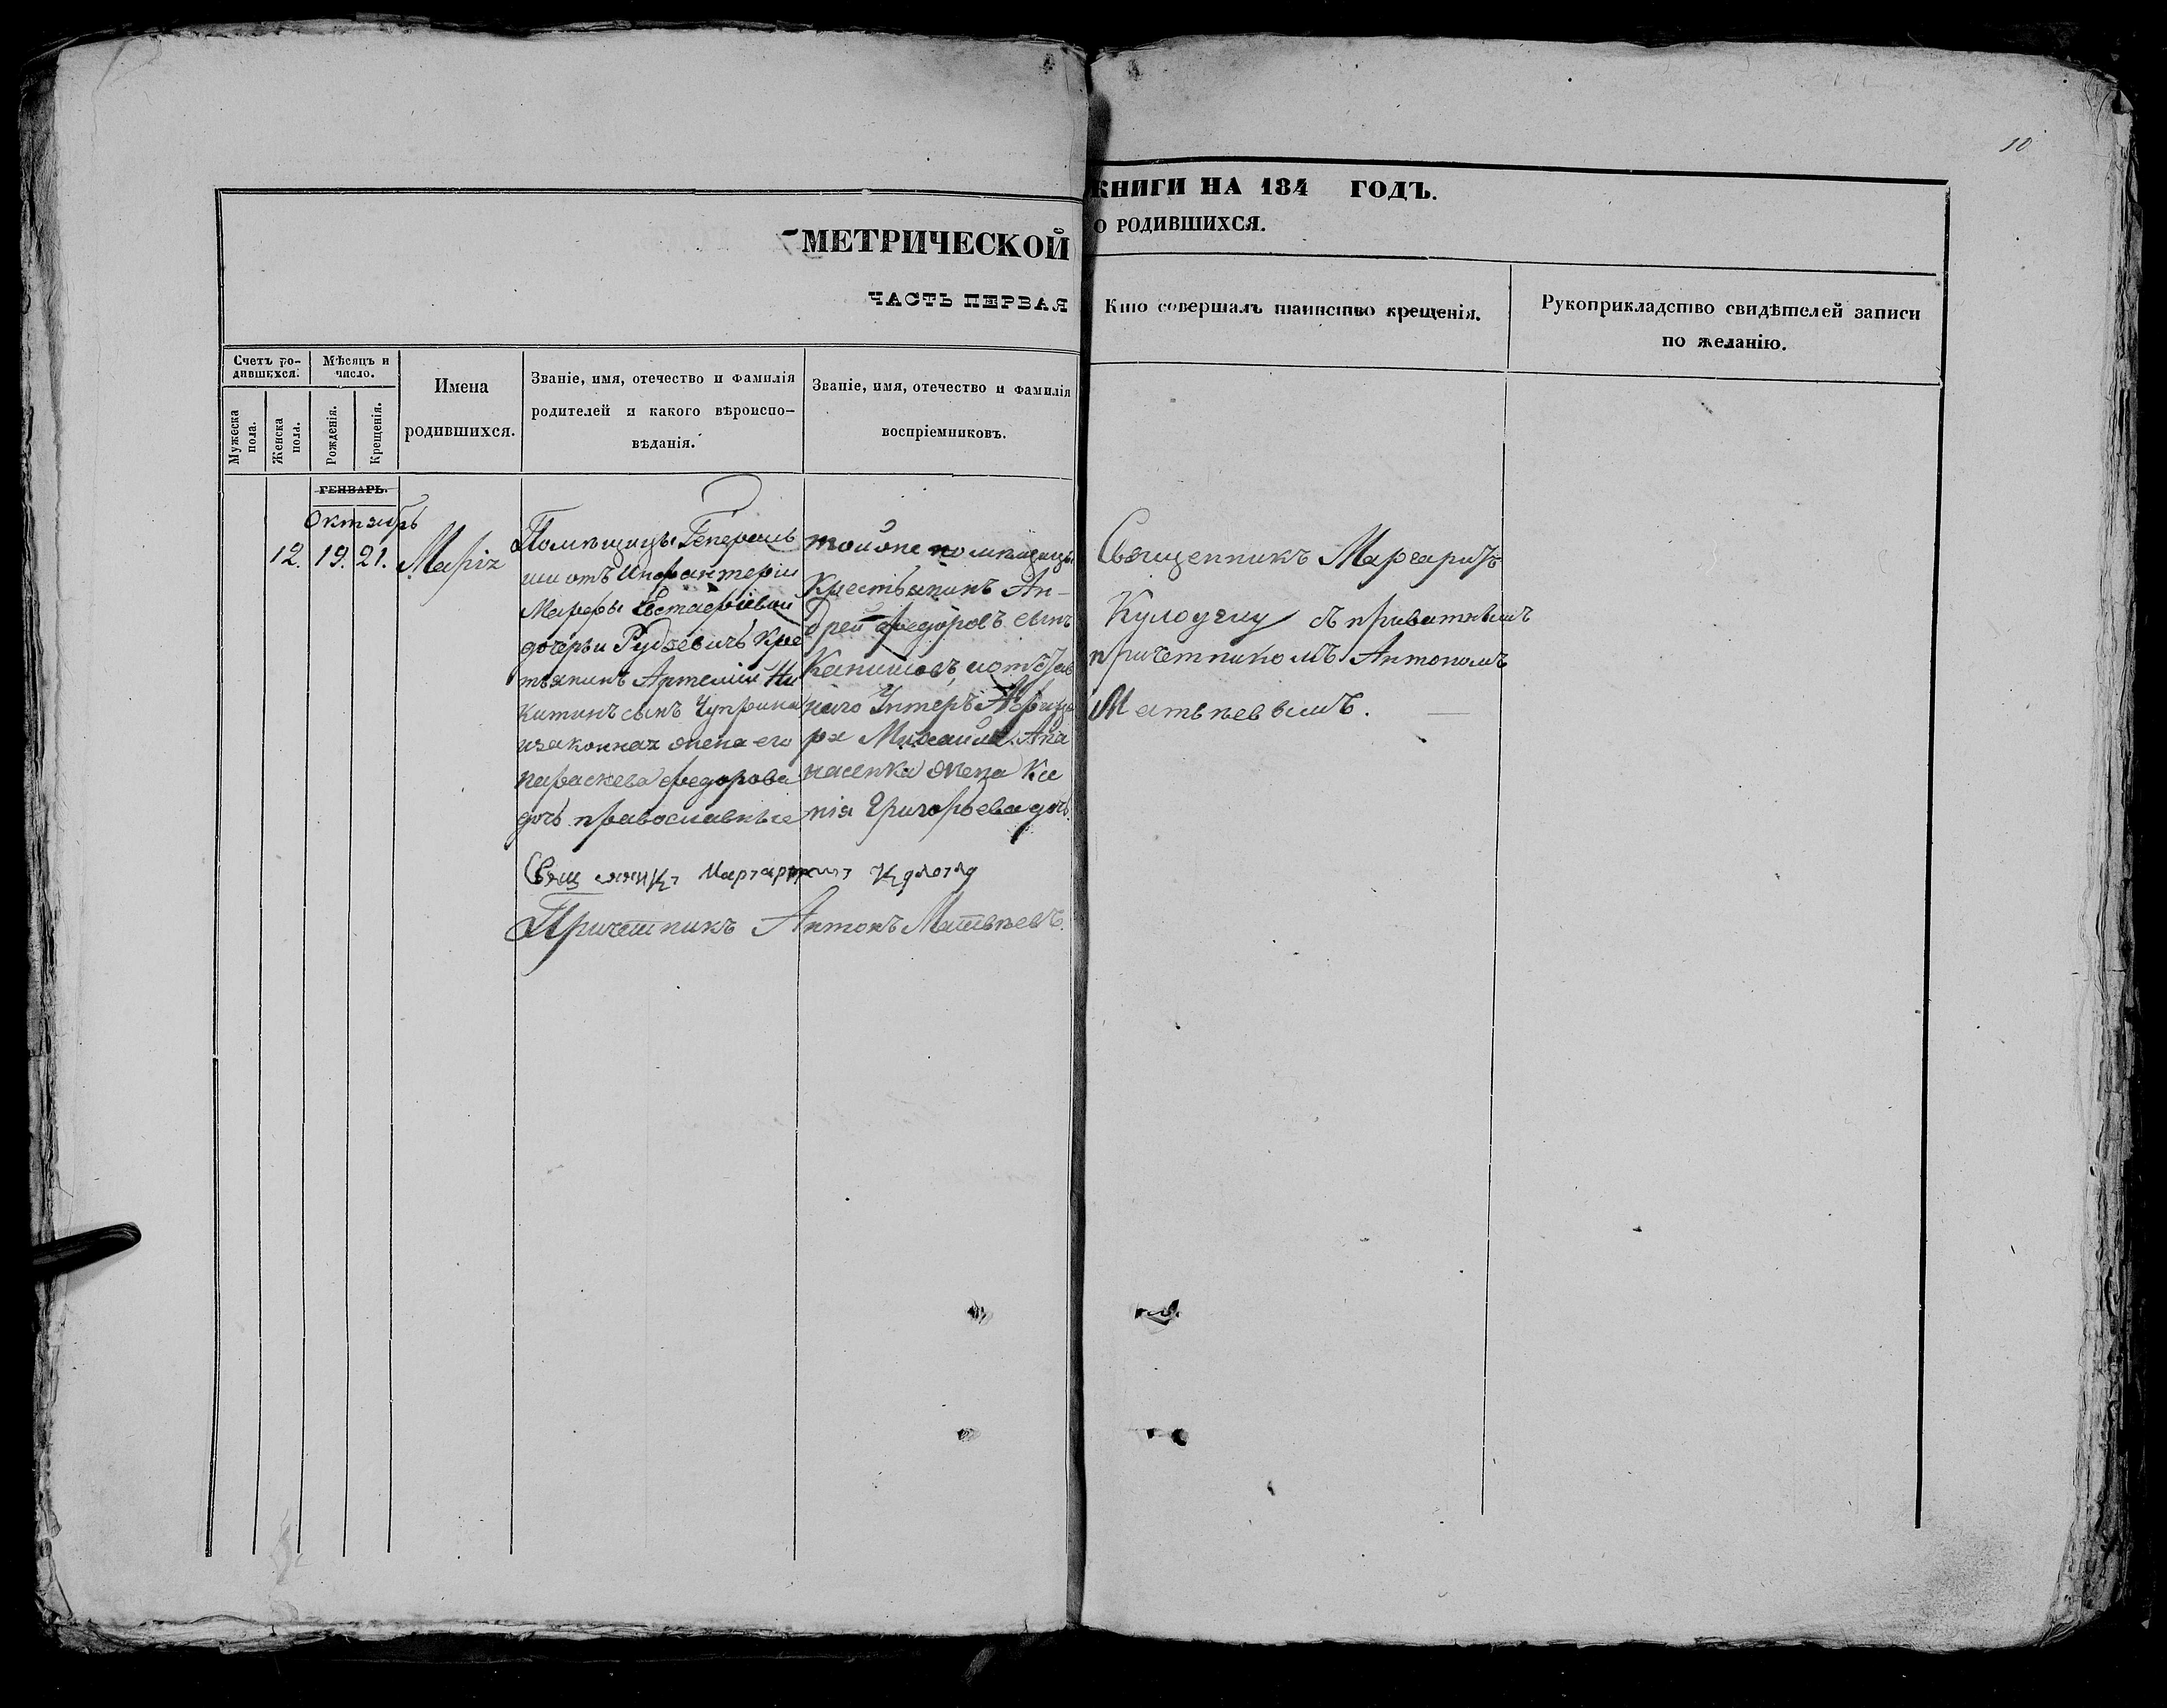 10
МЕТРИЧЕСКОЙ
КНИГИ НА 184 ГОДЪ.
ЧАСТЬ ПЕРВАЯ
О РОДИВШИХСЯ.
Счетъ ро-
дившихся.
Мужеска пола.
Женска пола.
Мѣсяцъ и
число.
Рожденія.
Крещенія.
Имена
родившихся.
Званіе, имя, отечество и фамилія
родителей и какого вѣроиспо-
вѣданія.
Званіе, имя, отечество и фамилія
воспріемниковъ.
Кто совершалъ таинство крещенія.
Рукоприкладство свидѣтелей записи
по желанію.
ГЕНВАРЬ.
Октябрь
12. 19. 21. Марія
Помѣщицы Генераль
ши отъ Инфантеріи
Марфы Евстафіевой
дочери Рудзевичъ Кре
тьянинъ Артемій Ни
китинъ сынъ Чуприна
изаконная жена его
параскева федорова
дочь православные
тойже помѣщицы
Крестьянинъ Ан-
дрей федоровъ сынъ
наго Унтеръ Афице
ра Михаила
жена Ксе
нія Григорьева дочь.
Священникъ Маргаритъ
съ приватнымъ
причетникомъ Антономъ
Матвѣевымъ.
Маргаритъ
Причетникъ Антонъ Матвѣевъ.